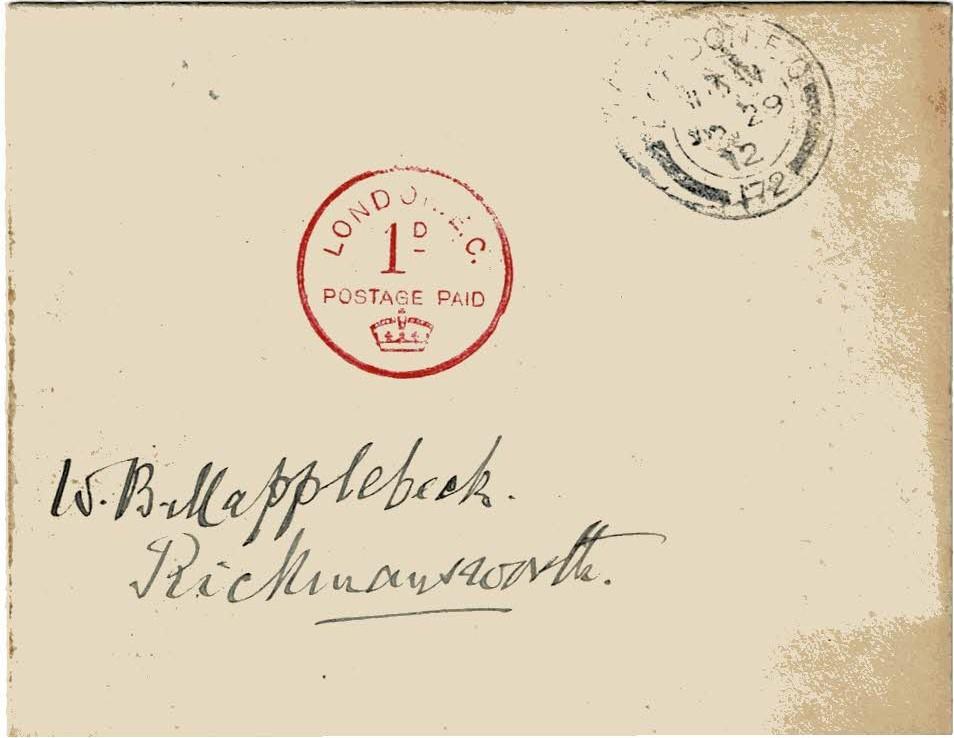 LONDON. E.C.
29
12
172
LONDON. E.C.
1D
POSTAGE PAID
W. B. Mapplebeck.
Rickmansworth.